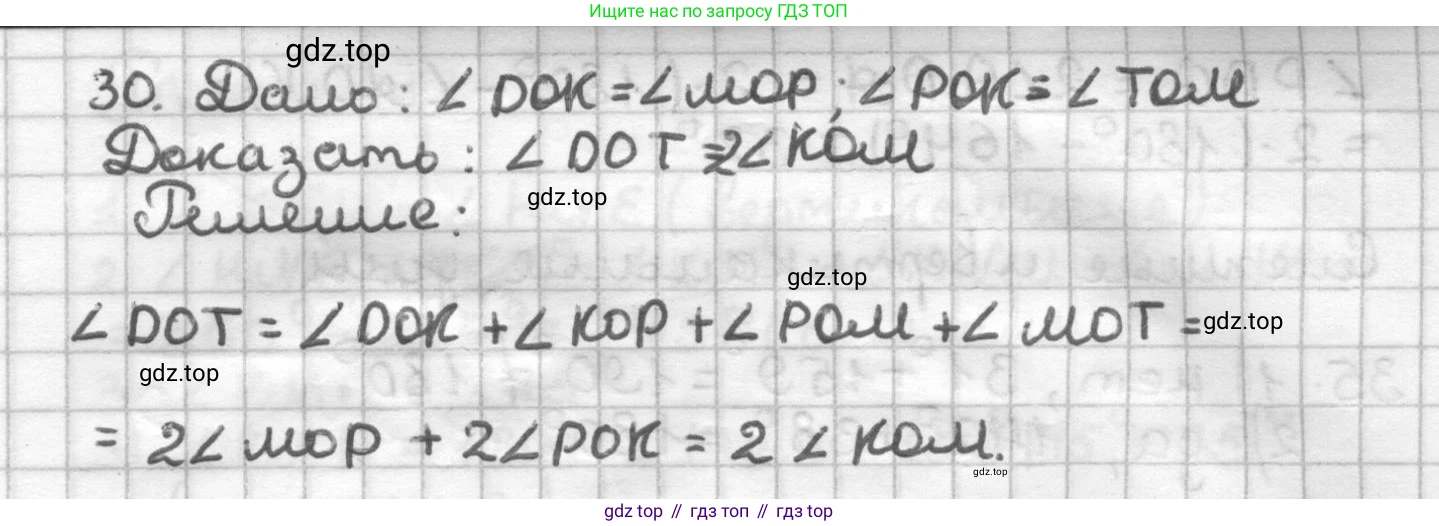 Ищите нас по запросу ГДЗ ТОП
gdz.top
30. Дано: ∠DOK = ∠MOP; ∠POK = ∠TOM
Доказать: ∠DOT = 2∠KOM
gdz.top
Решение:
gdz.top
∠DOT = ∠DOK + ∠KOP + ∠POM + ∠MOT =
gdz.top
gdz.top
= 2∠MOP + 2∠POK = 2∠KOM.
gdz.top
gdz top // гдз топ // гдз top